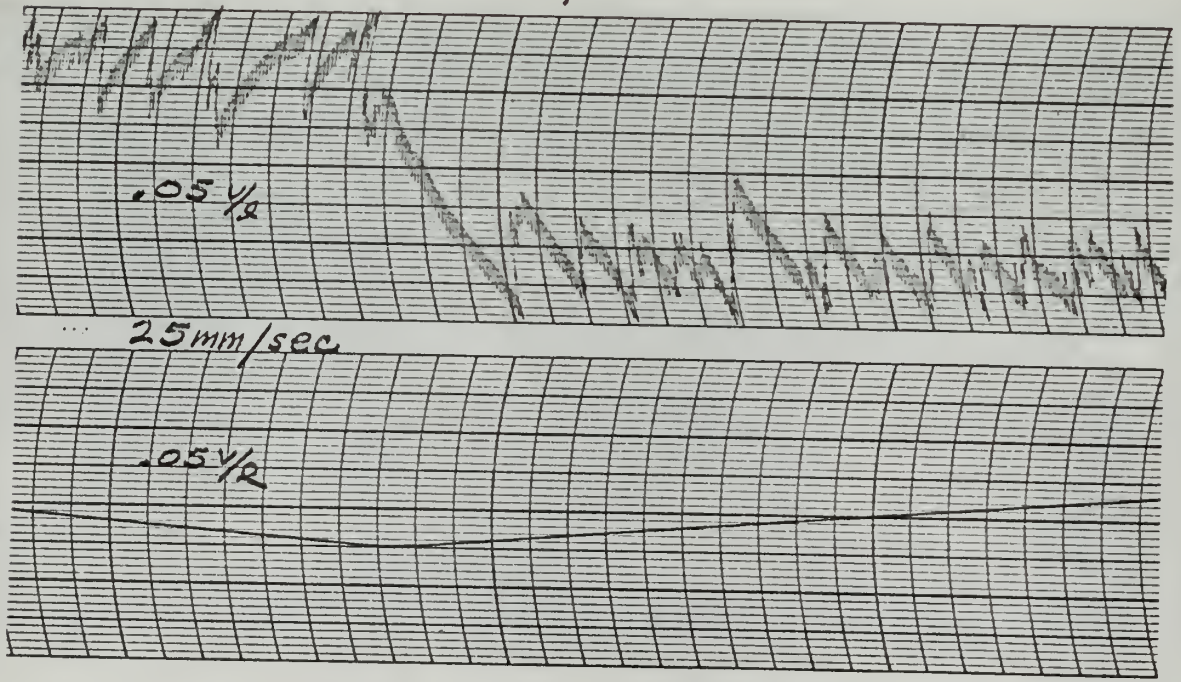 .05 V/l
25mm/sec
.05 V/l